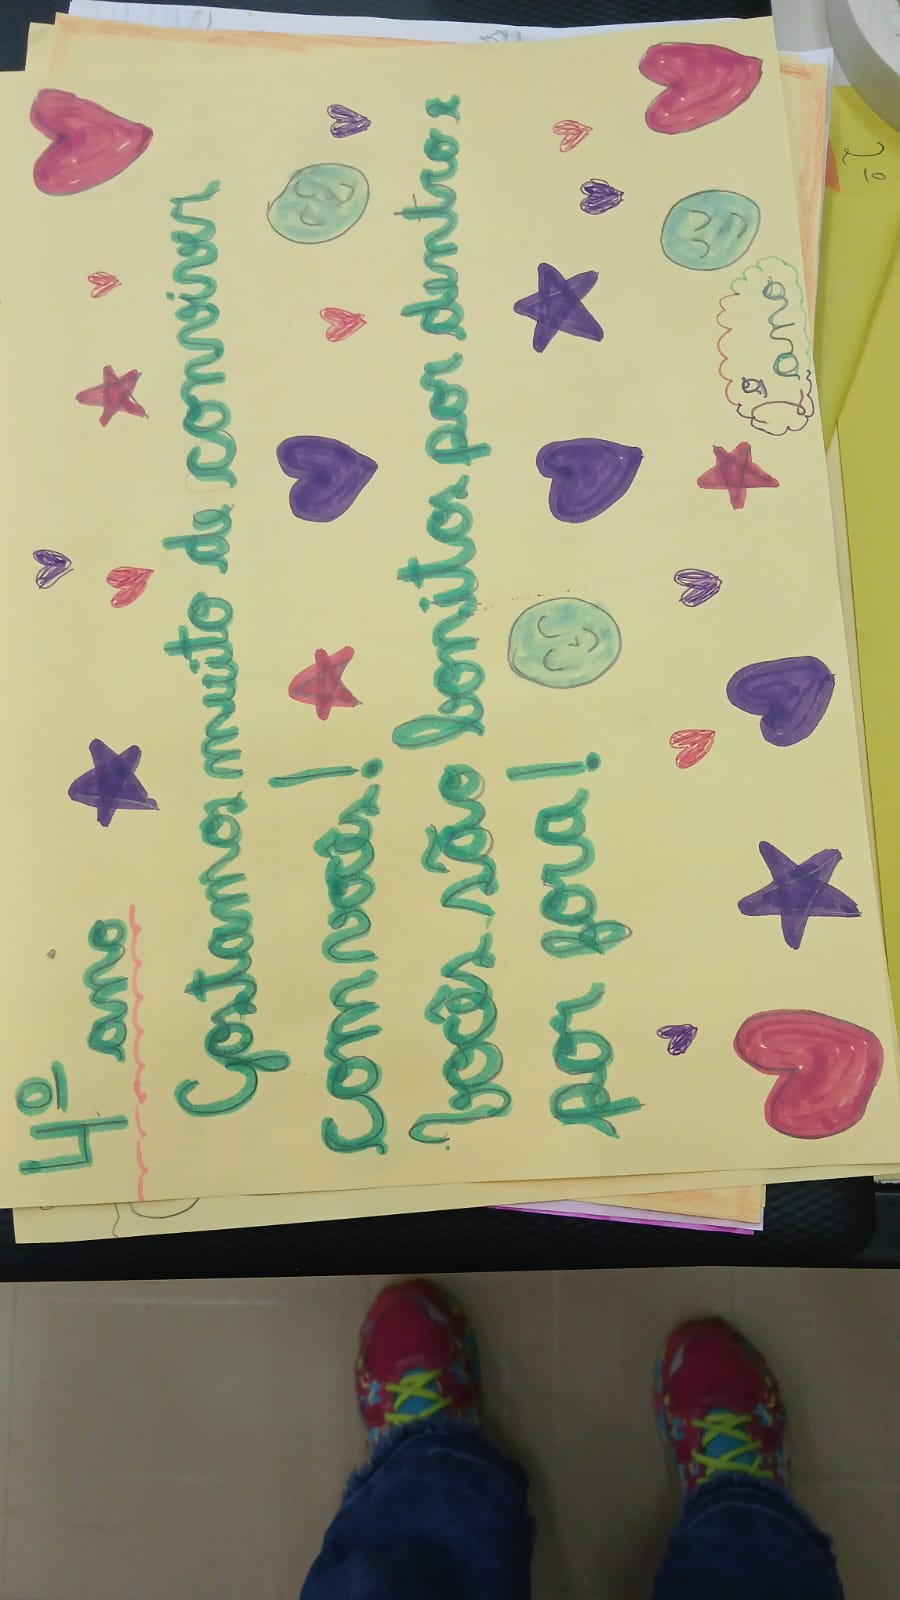 4º ano
Gostamos muito de conviver
com vocês!
Vocês são bonitos por dentro e
por fora!
2º